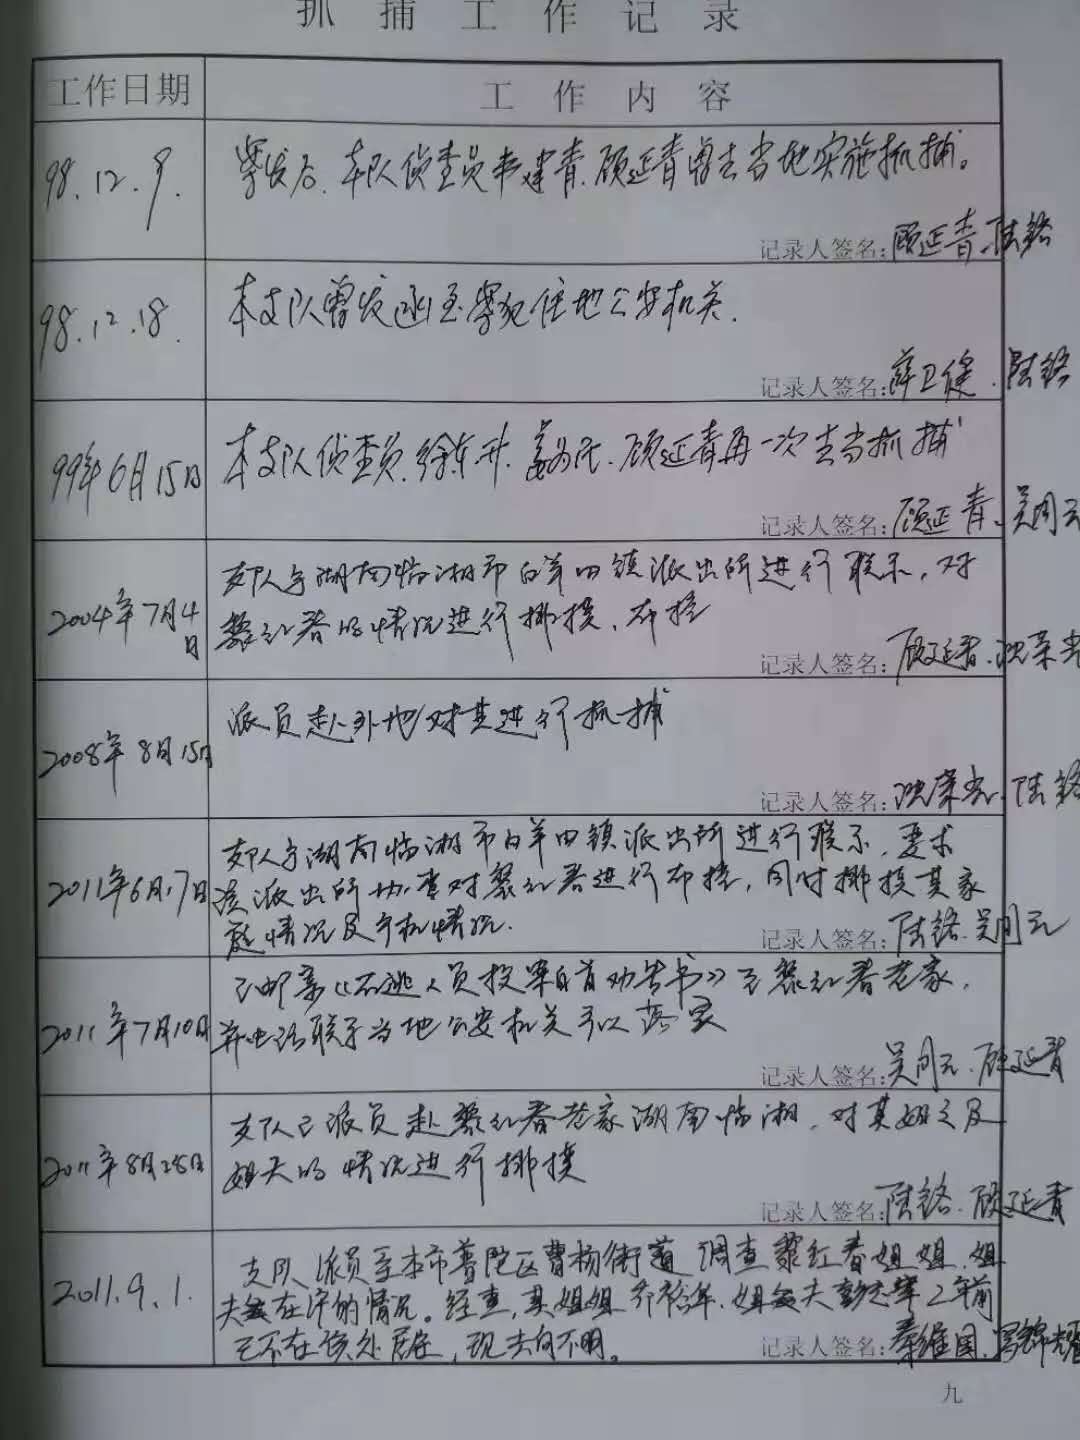 抓捕工作记录
工作日期 工作内容
98.12.9. 案发后,本队侦查员韦建青、顾延青曾去当地实施抓捕。
记录人签名:顾延青、陆铭
98.12.18. 本支队曾发函至案犯住地公安机关.
记录人签名:薛卫健、陆铭
99年6月15日 本支队侦查员徐东升、顾延青再一次去当抓捕
记录人签名:顾延青、吴闰云
2004年7月4日 支队与湖南临湘市白羊田镇派出所进行联系,对
黎红春的情况进行排摸、布控
记录人签名:顾延青、沈荣光
2008年8月15日 派员赴外地对其进行抓捕
记录人签名:沈荣光、陆铭
2011年6月17日 支队与湖南临湘市白羊田镇派出所进行联系,要求
该派出所协查对黎红春进行布控,同时排摸其家
庭情况及手机情况.
记录人签名:陆铭、吴闰云
2011年7月10日 已邮寄《在逃人员投案自首劝告书》至黎红春老家,
并电话联系当地公安机关予以落实
记录人签名:吴闰云、顾延青
2011年8月28日 支队已派员赴黎红春老家湖南临湘,对其姐之及
姐夫的情况进行排摸
记录人签名:陆铭、顾延青
2011.9.1. 支队派员至本市普陀区曹杨街道调查黎红春姐姐、姐
夫在沪的情况。经查,其姐姐 姐夫 2年前
已不在该处居住,现去向不明。
记录人签名:秦维国、
九